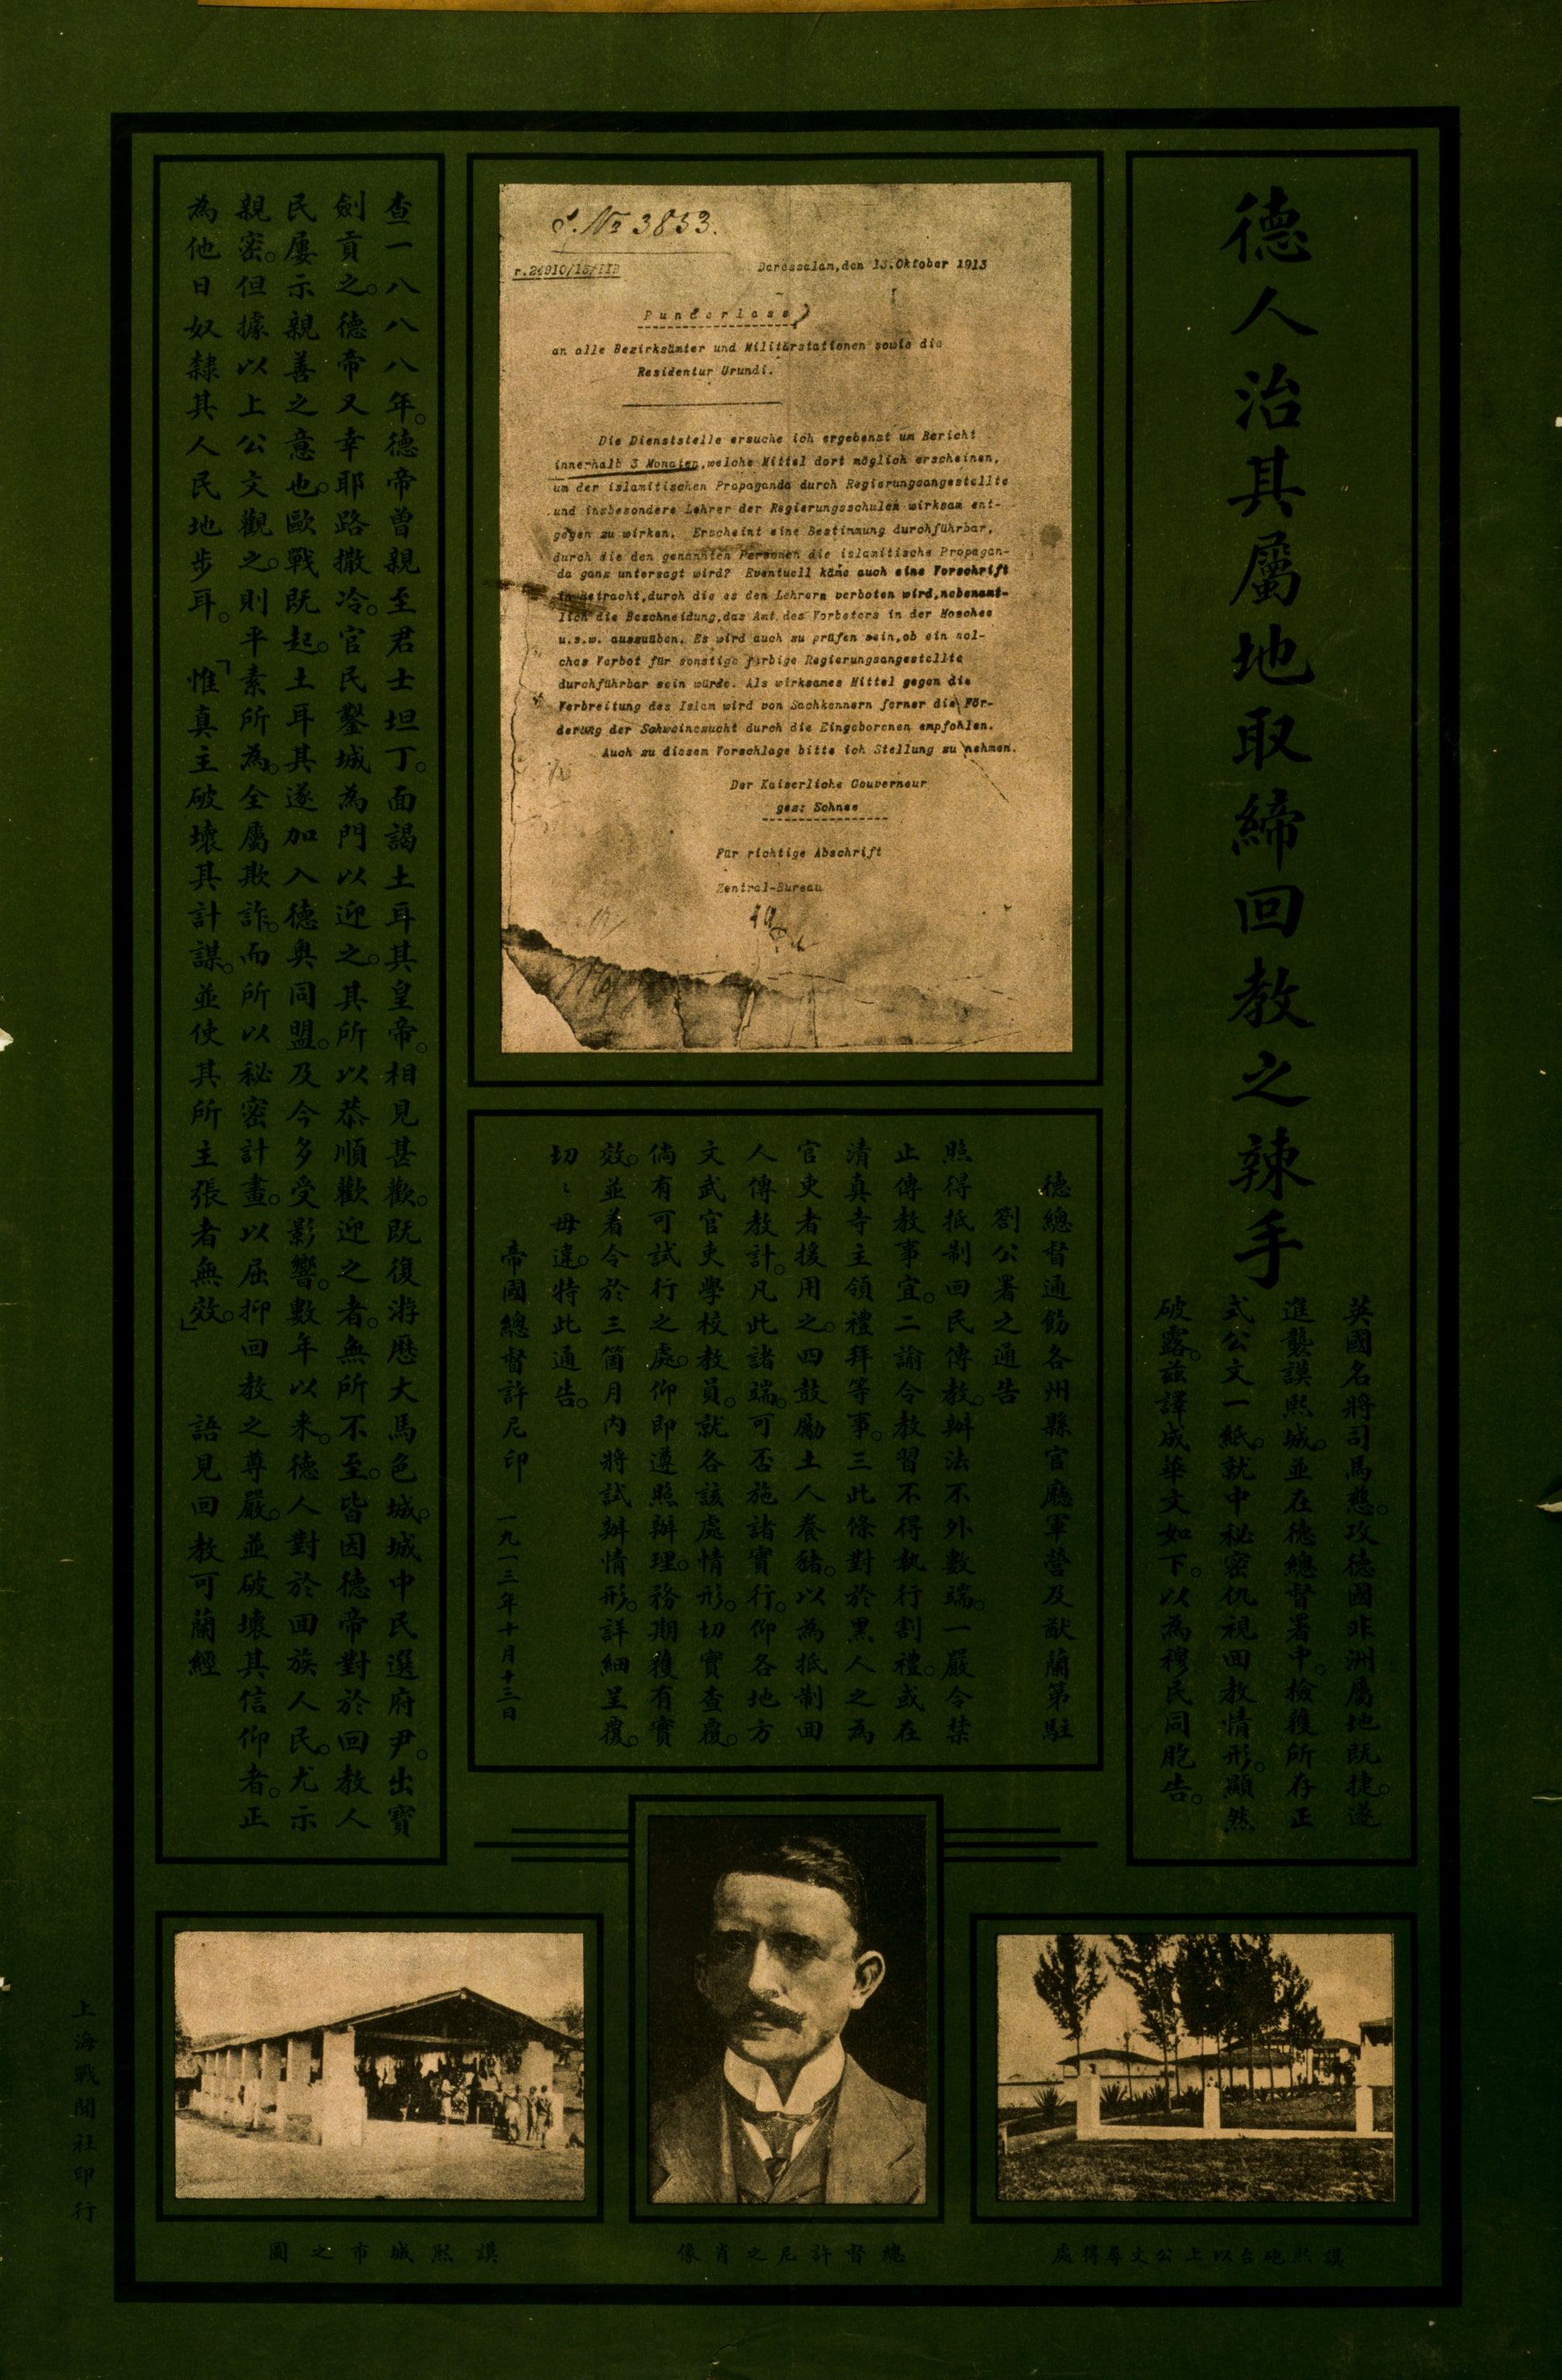 德人治其屬地取締回教之辣手
英國名將司馬慈。攻德國非洲屬地既捷。遂
進襲謨熙城。並在德總督署中。檢獲所存正
式公文一紙。就中秘密仇視回教情形。顯然
破露。茲譯成華文如下。以為穆民同胞告。
J.№ 3853.
Daressalam,den 13.Oktober 1913
Runderlass
an alle Bezirksämter und Militärstationen sowie die
Residentur Urundi.
Die Dienststelle ersuche ich ergebenst um Bericht
innerhalb 3 Monaten,welche Mittel dort möglich erscheinen,
um der islamitischen Propaganda durch Regierungsangestellte
und insbesondere Lehrer der Regierungsschulen wirksam ent-
gegen zu wirken. Erscheint eine Bestimmung durchführbar,
durch die den genannten Personen die islamitische Propagan-
da ganz untersagt wird? Eventuell käme auch eine Vorschrift
in Betracht,durch die es den Lehrern verboten wird,nebenamt-
lich die Beschneidung,das Amt des Vorbeters in der Moschee
u.s.w. auszuüben. Es wird auch zu prüfen sein,ob ein sol-
ches Verbot für sonstige farbige Regierungsangestellte
durchführbar sein würde. Als wirksames Mittel gegen die
Verbreitung des Islam wird von Sachkennern ferner die För-
derung der Schweinezucht durch die Eingeborenen empfohlen.
Auch zu diesem Vorschlage bitte ich Stellung zu nehmen.
Der Kaiserliche Gouverneur
gez: Schnee
Für richtige Abschrift
Zentral-Bureau
德總督通飭各州縣官廳軍營及猷蘭第駐
劄公署之通告
照得抵制回民傳教。辦法不外數端。一嚴令禁
止傳教事宜。二諭令教習不得執行割禮。或在
清真寺主領禮拜等事。三此條對於黑人之為
官吏者援用之。四鼓勵土人養豬。以為抵制回
人傳教計。凡此諸端。可否施諸實行。仰各地方
文武官吏學校教員。就各該處情形。切實查覆。
倘有可試行之處。仰即遵照辦理。務期獲有實
效。並着令於三箇月內將試辦情形。詳細呈覆。
切〻毋違。特此通告。
帝國總督許尼印 一九一三年十月十三日
查一八八八年。德帝曾親至君士坦丁。面謁土耳其皇帝。相見甚歡。既復游歷大馬色城。城中民選府尹。出寶
劍貢之。德帝又幸耶路撒冷。官民鑿城為門以迎之。其所以恭順歡迎之者。無所不至。皆因德帝對於回教人
民屢示親善之意也。歐戰既起。土耳其遂加入德奧同盟。及今多受影響。數年以來。德人對於回族人民。尤示
親密。但據以上公文觀之。則平素所為。全屬欺詐。而所以秘密計畫。以屈抑回教之尊嚴。並破壞其信仰者。正
為他日奴隸其人民地步耳。「惟真主破壞其計謀。並使其所主張者無效。」 語見回教可蘭經
謨熙砲台以上公文尋得處
總督許尼之肖像
謨熙城市之圖
上海戰聞社印行